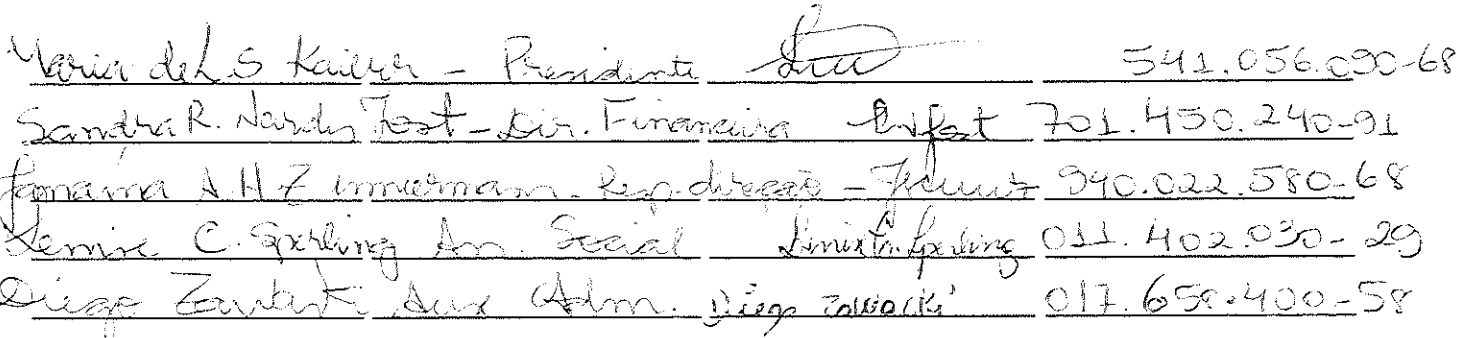 Maria de L S Kaiser - Presidente 541.056.090-68
Sandra R. Nardy Tost - Dir. Financeira 701.450.240-91
Janaina A. H. Zimmermann - Rep. direção - 940.022.580-68
Denise C. Sperling As. Social Denise C. Sperling 011.402.030-29
Diego Zawacki Aux Adm. Diego Zawacki 017.658.400-58